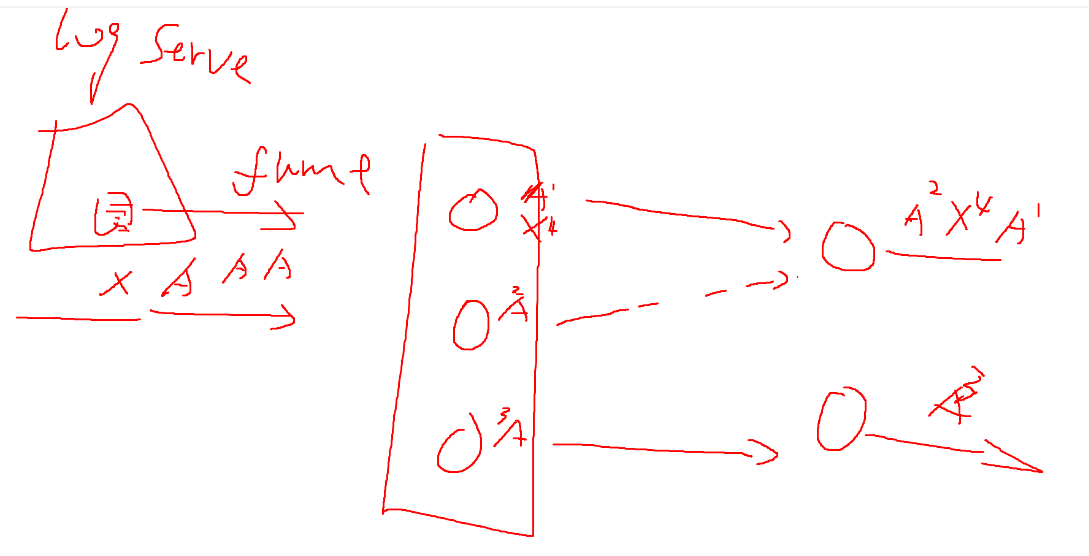 Log Serve
flume
X A A A
A¹
X⁴
²A
³A
A² X⁴ A¹